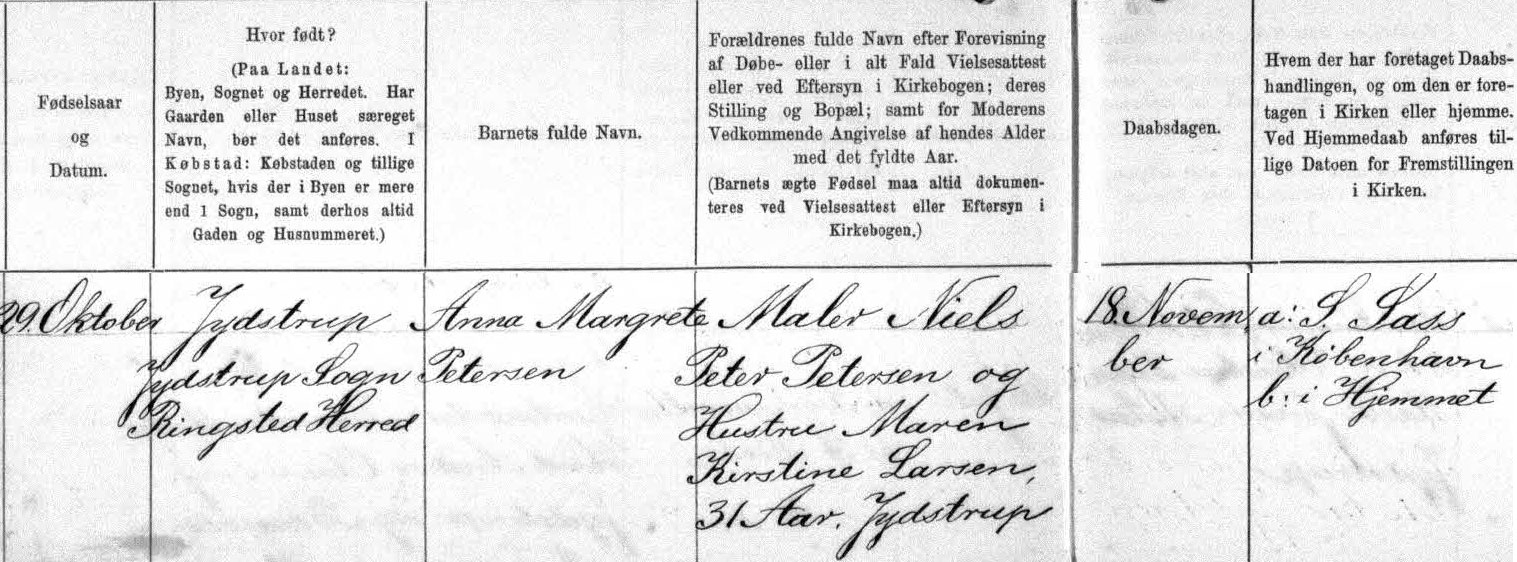 Fødselsaar
og
Datum.
Hvor født?
(Paa Landet:
Byen, Sognet og Herredet. Har
Gaarden eller Huset særeget
Navn, bør det anføres. I
Købstad: Købstaden og tillige
Sognet, hvis der i Byen er mere
end 1 Sogn, samt derhos altid
Gaden og Husnummeret.)
Barnets fulde Navn.
Forældrenes fulde Navn efter Forevisning
af Døbe- eller i alt Fald Vielsesattest
eller ved Eftersyn i Kirkebogen; deres
Stilling og Bopæl; samt for Moderens
Vedkommende Angivelse af hendes Alder
med det fyldte Aar.
(Barnets ægte Fødsel maa altid dokumen-
teres ved Vielsesattest eller Eftersyn i
Kirkebogen.)
Daabsdagen.
Hvem der har foretaget Daabs-
handlingen, og om den er fore-
tagen i Kirken eller hjemme.
Ved Hjemmedaab anføres til-
lige Datoen for Fremstillingen
i Kirken.
29. Oktober
Jydstrup
Jydstrup Sogn
Ringsted Herred
Anna Margrete
Petersen
Maler Niels
Peter Petersen og
Hustru Maren
Kirstine Larsen,
31 Aar. Jydstrup
18. Novem
ber
a: S. Sass
i København
b: i Hjemmet